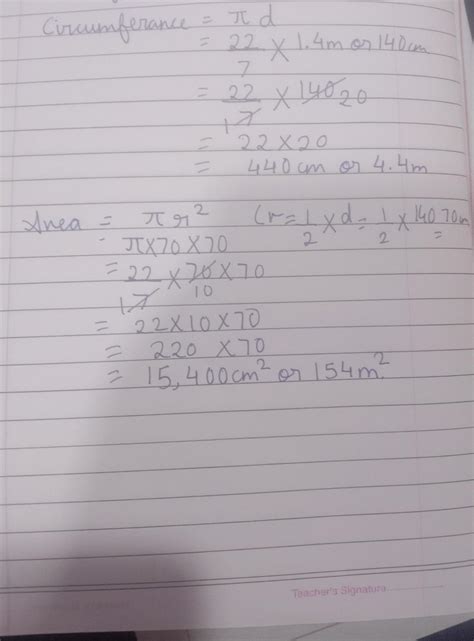 Circumferance = π d
= 22/7 × 1.4m or 140cm
= 22/1 7 × 140 20
= 22 × 20
= 440 cm or 4.4m
Area = π r² (r = 1/2 × d = 1/2 × 140 70m
= π × 70 × 70
= 22/1 7 × 70 10 × 70
= 22 × 10 × 70
= 220 × 70
= 15,400 cm² or 154 m²
Teacher's Signature